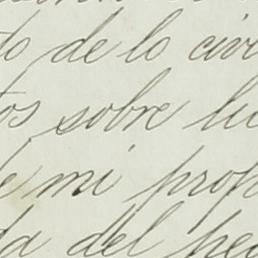 do de lo civi
tos sobre lu
de mi prop
da del pec